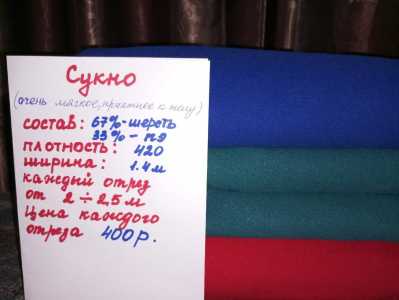 Сукно
(очень мягкое, приятное к телу)
состав: 67%-шерсть
33%-пэ
плотность: 420
ширина: 1.4 м
каждый отрез
от 2÷2,5 м
Цена каждого
отреза 400 р.